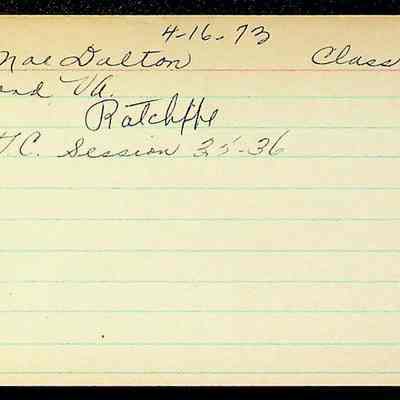 4-16-73
Mae Dalton Class
ond, Va.
Ratcliffe
T.C. Session 35-36